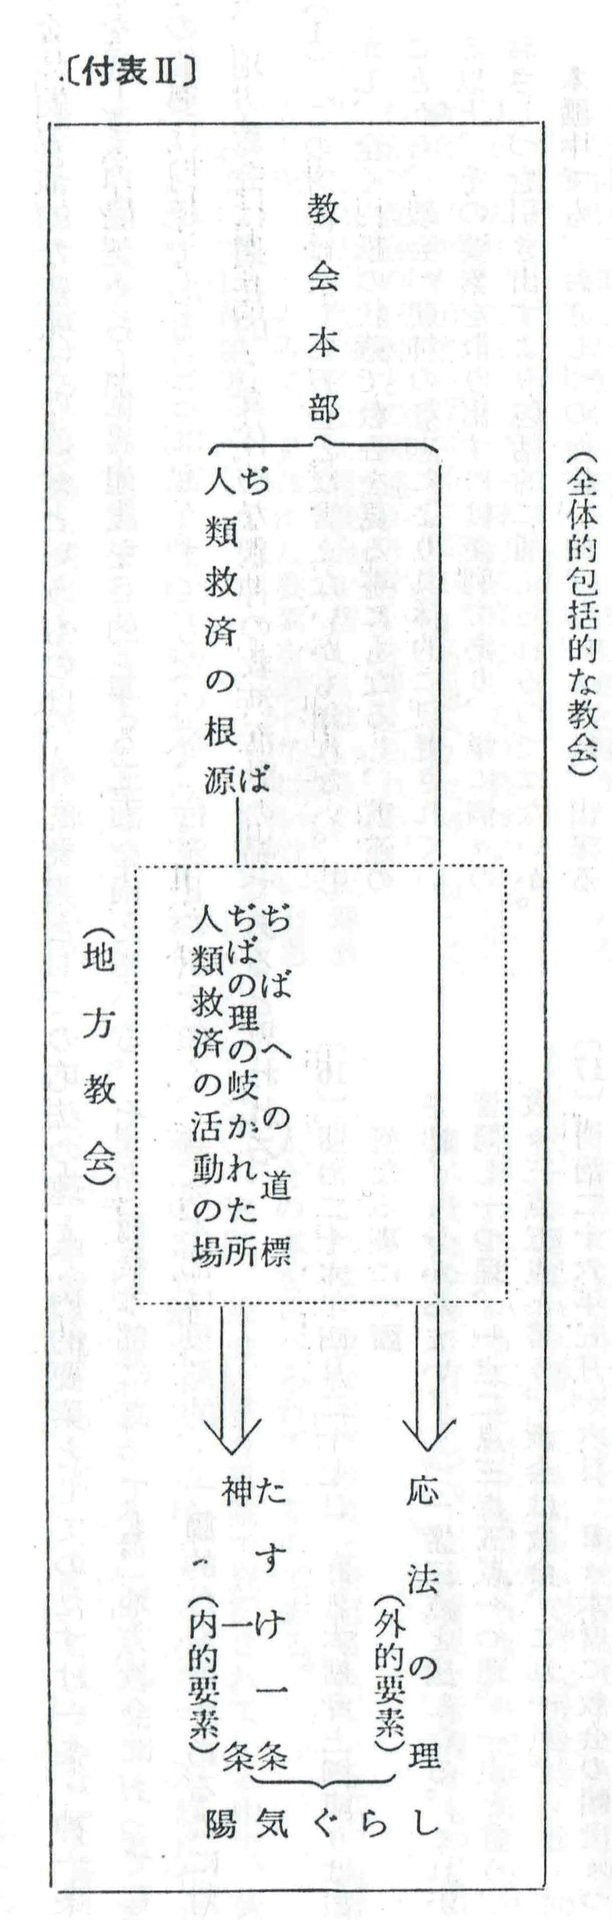 〔付表Ⅱ〕
(全体的包括的な教会)
教会本部
ぢば
人類救済の根源
ぢばへの道標
ぢばの理の岐かれた所
人類救済の活動の場
(地方教会)
応法の理
(外的要素)
たすけ一条
神一条
(内的要素)
陽気ぐらし